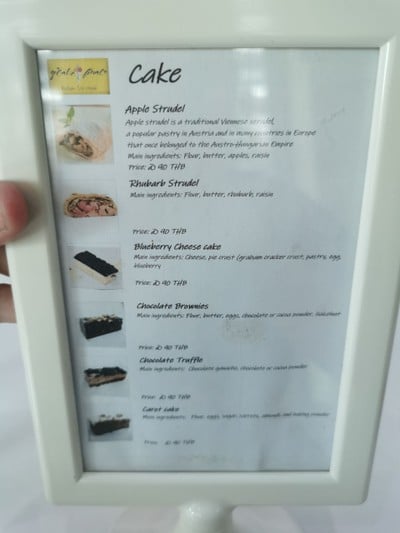 Cake
Apple Strudel
Apple strudel is a traditional Viennese strudel,
a popular pastry in Austria and in many countries in Europe
that once belonged to the Austro-Hungarian Empire
Main ingredients: Flour, butter, apples, raisin
Price: D 90 THB
Rhubarb Strudel
Main ingredients: Flour, butter, rhubarb, raisin
Price: D 90 THB
Blueberry Cheese cake
Main ingredients: Cheese, pie crust (graham cracker crust, pastry, egg,
blueberry
Price: D 90 THB
Chocolate Brownies
Main ingredients: Flour, butter, eggs, chocolate or cocoa powder, Hazelnut
Price: D 90 THB
Chocolate Truffle
Main ingredients: Chocolate ganache, chocolate or cocoa powder
Price: D 90 THB
Carot cake
Main ingredients: Flour, eggs, sugar, carrots, almonds and baking powder
Price: D 90 THB